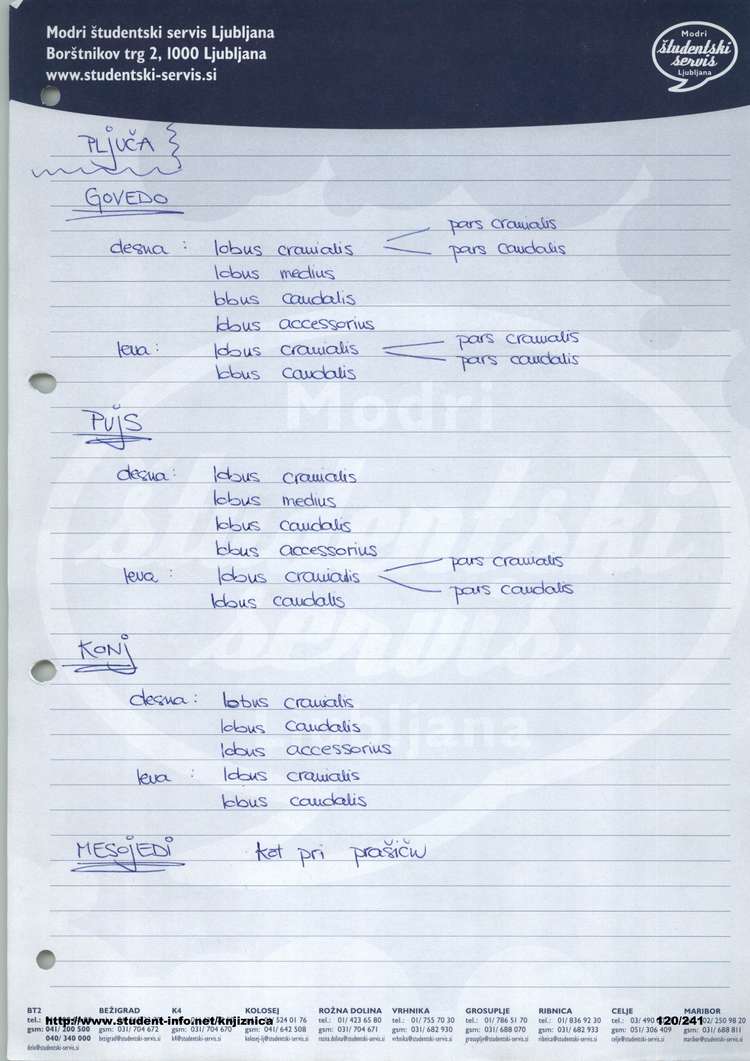 Modri študentski servis Ljubljana
Borštnikov trg 2, 1000 Ljubljana
www.studentski-servis.si
Modri
študentski
servis
Ljubljana
PLJUČA
GOVEDO
desna : lobus cranialis pars cranialis
pars caudalis
lobus medius
lobus caudalis
lobus accessorius
leva : lobus cranialis pars cranialis
pars caudalis
lobus caudalis
PUJS
desna : lobus cranialis
lobus medius
lobus caudalis
lobus accessorius
leva : lobus cranialis pars cranialis
pars caudalis
lobus caudalis
KONJ
desna : lobus cranialis
lobus caudalis
lobus accessorius
leva : lobus cranialis
lobus caudalis
MESOJEDI kot pri prašiču
BT2 BEŽIGRAD K4 KOLOSEJ ROŽNA DOLINA VRHNIKA GROSUPLJE RIBNICA CELJE MARIBOR
tel.: http://www.student-info.net/knjiznica 524 01 76 tel.: 01/ 423 65 80 tel.: 01/ 755 70 30 tel.: 01/ 786 51 70 tel.: 01/ 836 92 30 tel.: 03/ 490 120/241 02/ 250 98 20
gsm: 041/ 200 500 gsm: 031/ 704 672 gsm: 031/ 704 670 gsm: 041/ 642 508 gsm: 031/ 704 671 gsm: 031/ 682 930 gsm: 031/ 688 070 gsm: 031/ 682 933 gsm: 051/ 306 409 gsm: 031/ 688 811
040/ 340 000